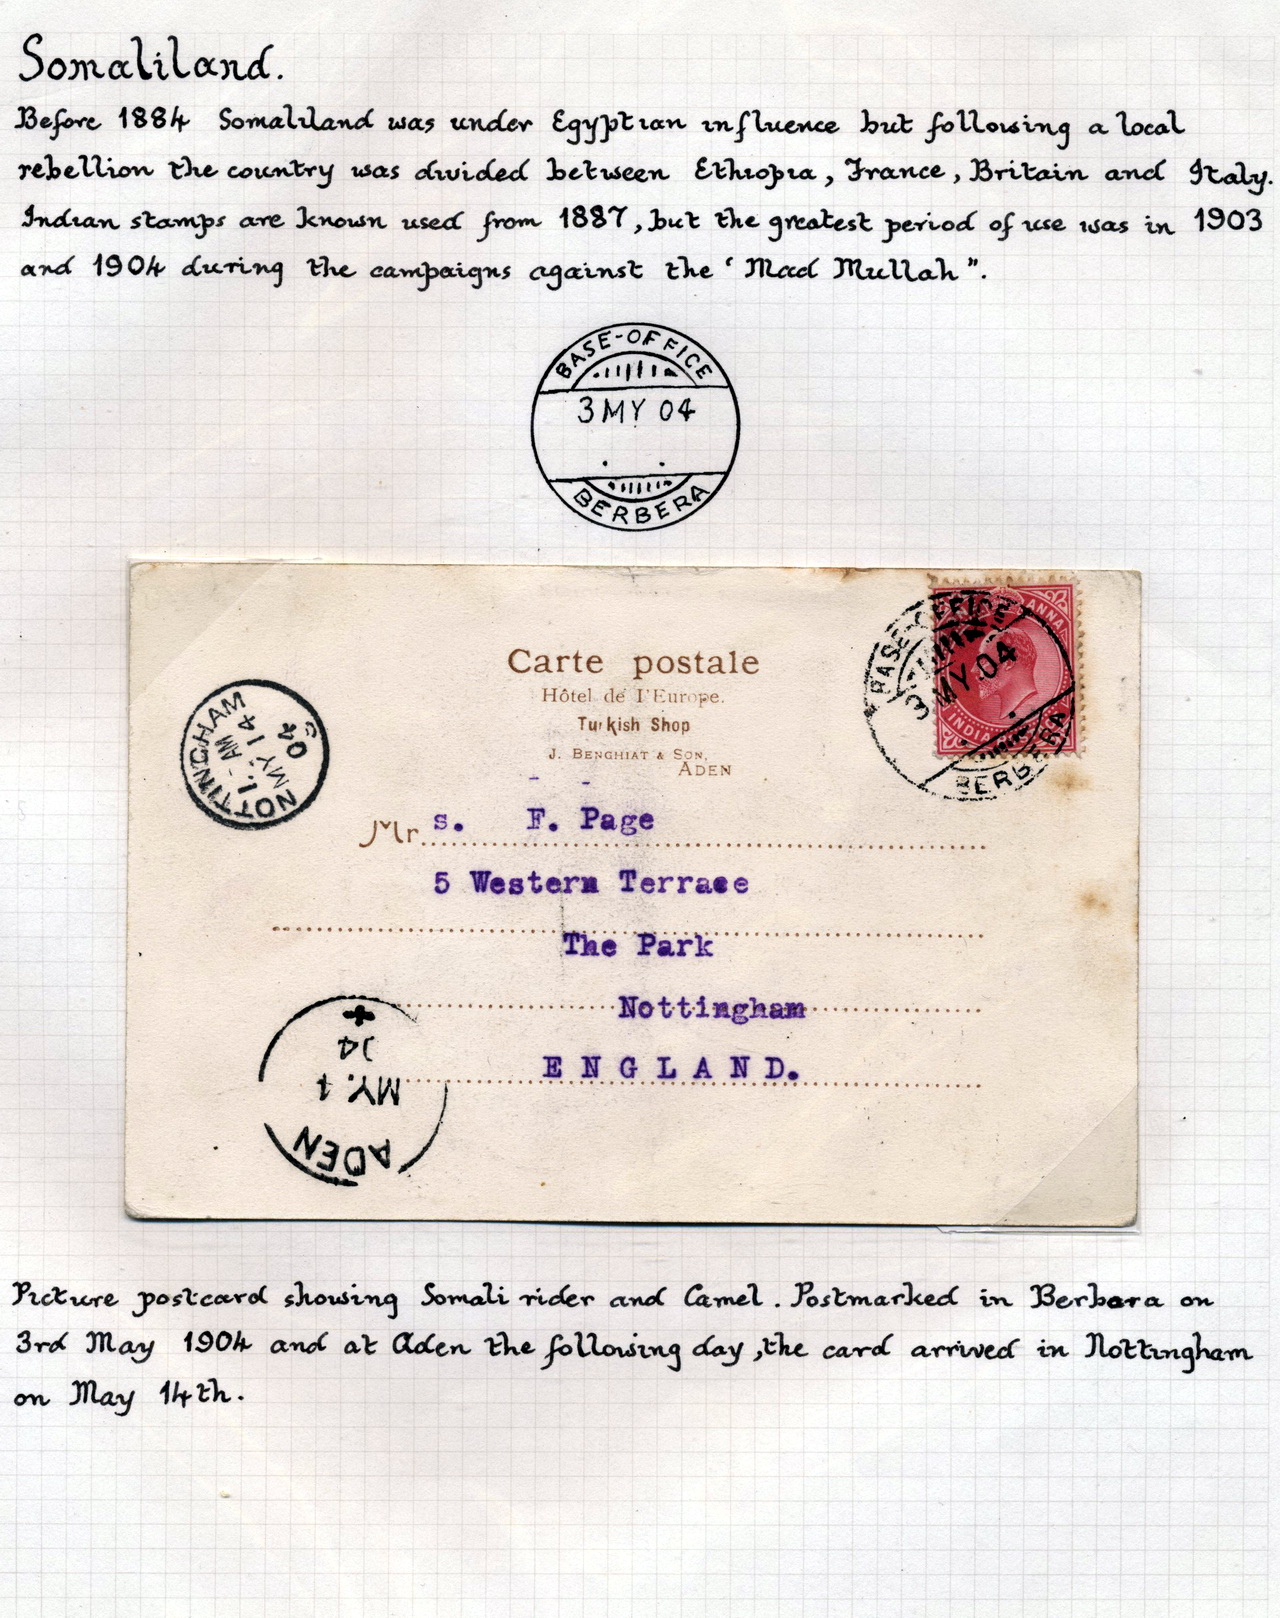 Somaliland.
Before 1884 Somaliland was under Egyptian influence but following a local
rebellion the country was divided between Ethiopia, France, Britain and Italy.
Indian stamps are known used from 1887, but the greatest period of use was in 1903
and 1904 during the campaigns against the ‘Mad Mullah”.
BASE-OFFICE
3 MY 04
BERBERA
Carte postale
Hôtel de l'Europe.
Turkish Shop
J. BENGHIAT & SON,
ADEN
BASE-OFFICE
3 MY 04
BERBERA
ANNA
INDIA
NOTTINGHAM
1 - AM
MY 14
04
Mr s. F. Page
5 Western Terrace
The Park
Nottingham
ENGLAND.
ADEN
MY. 4
04
Picture postcard showing Somali rider and Camel. Postmarked in Berbera on
3rd May 1904 and at Aden the following day, the card arrived in Nottingham
on May 14th.